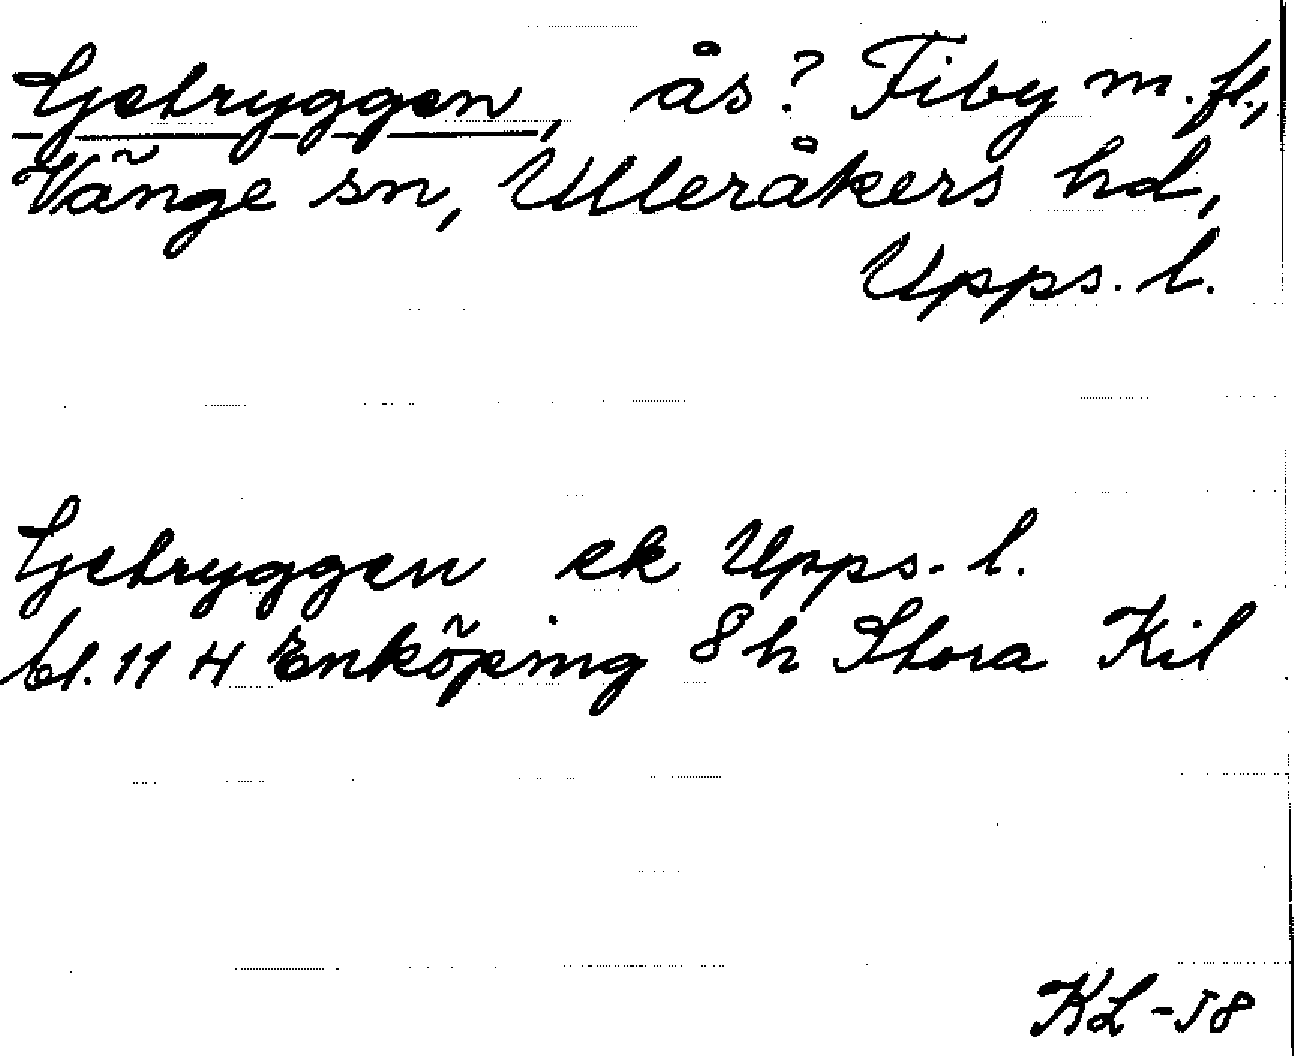 Getryggen, ås? Fiby m. fl.,
Vänge sn, Ulleråkers hd,
Upps. l.
Getryggen ek Upps. l.
bl. 11 H Enköping 8 h Stora Kil
KL-58